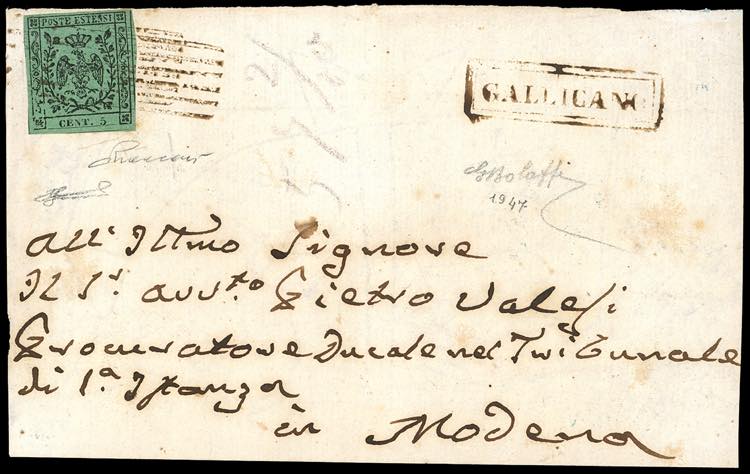 POSTE ESTENSI
CENT. 5
GALLICANO
EBolaffi
1947
All' Illmo Signore
Il Sr. Avv.to Pietro Valesi
Procuratore Ducale nel Tribunale
di 1.a Istanza
in Modena